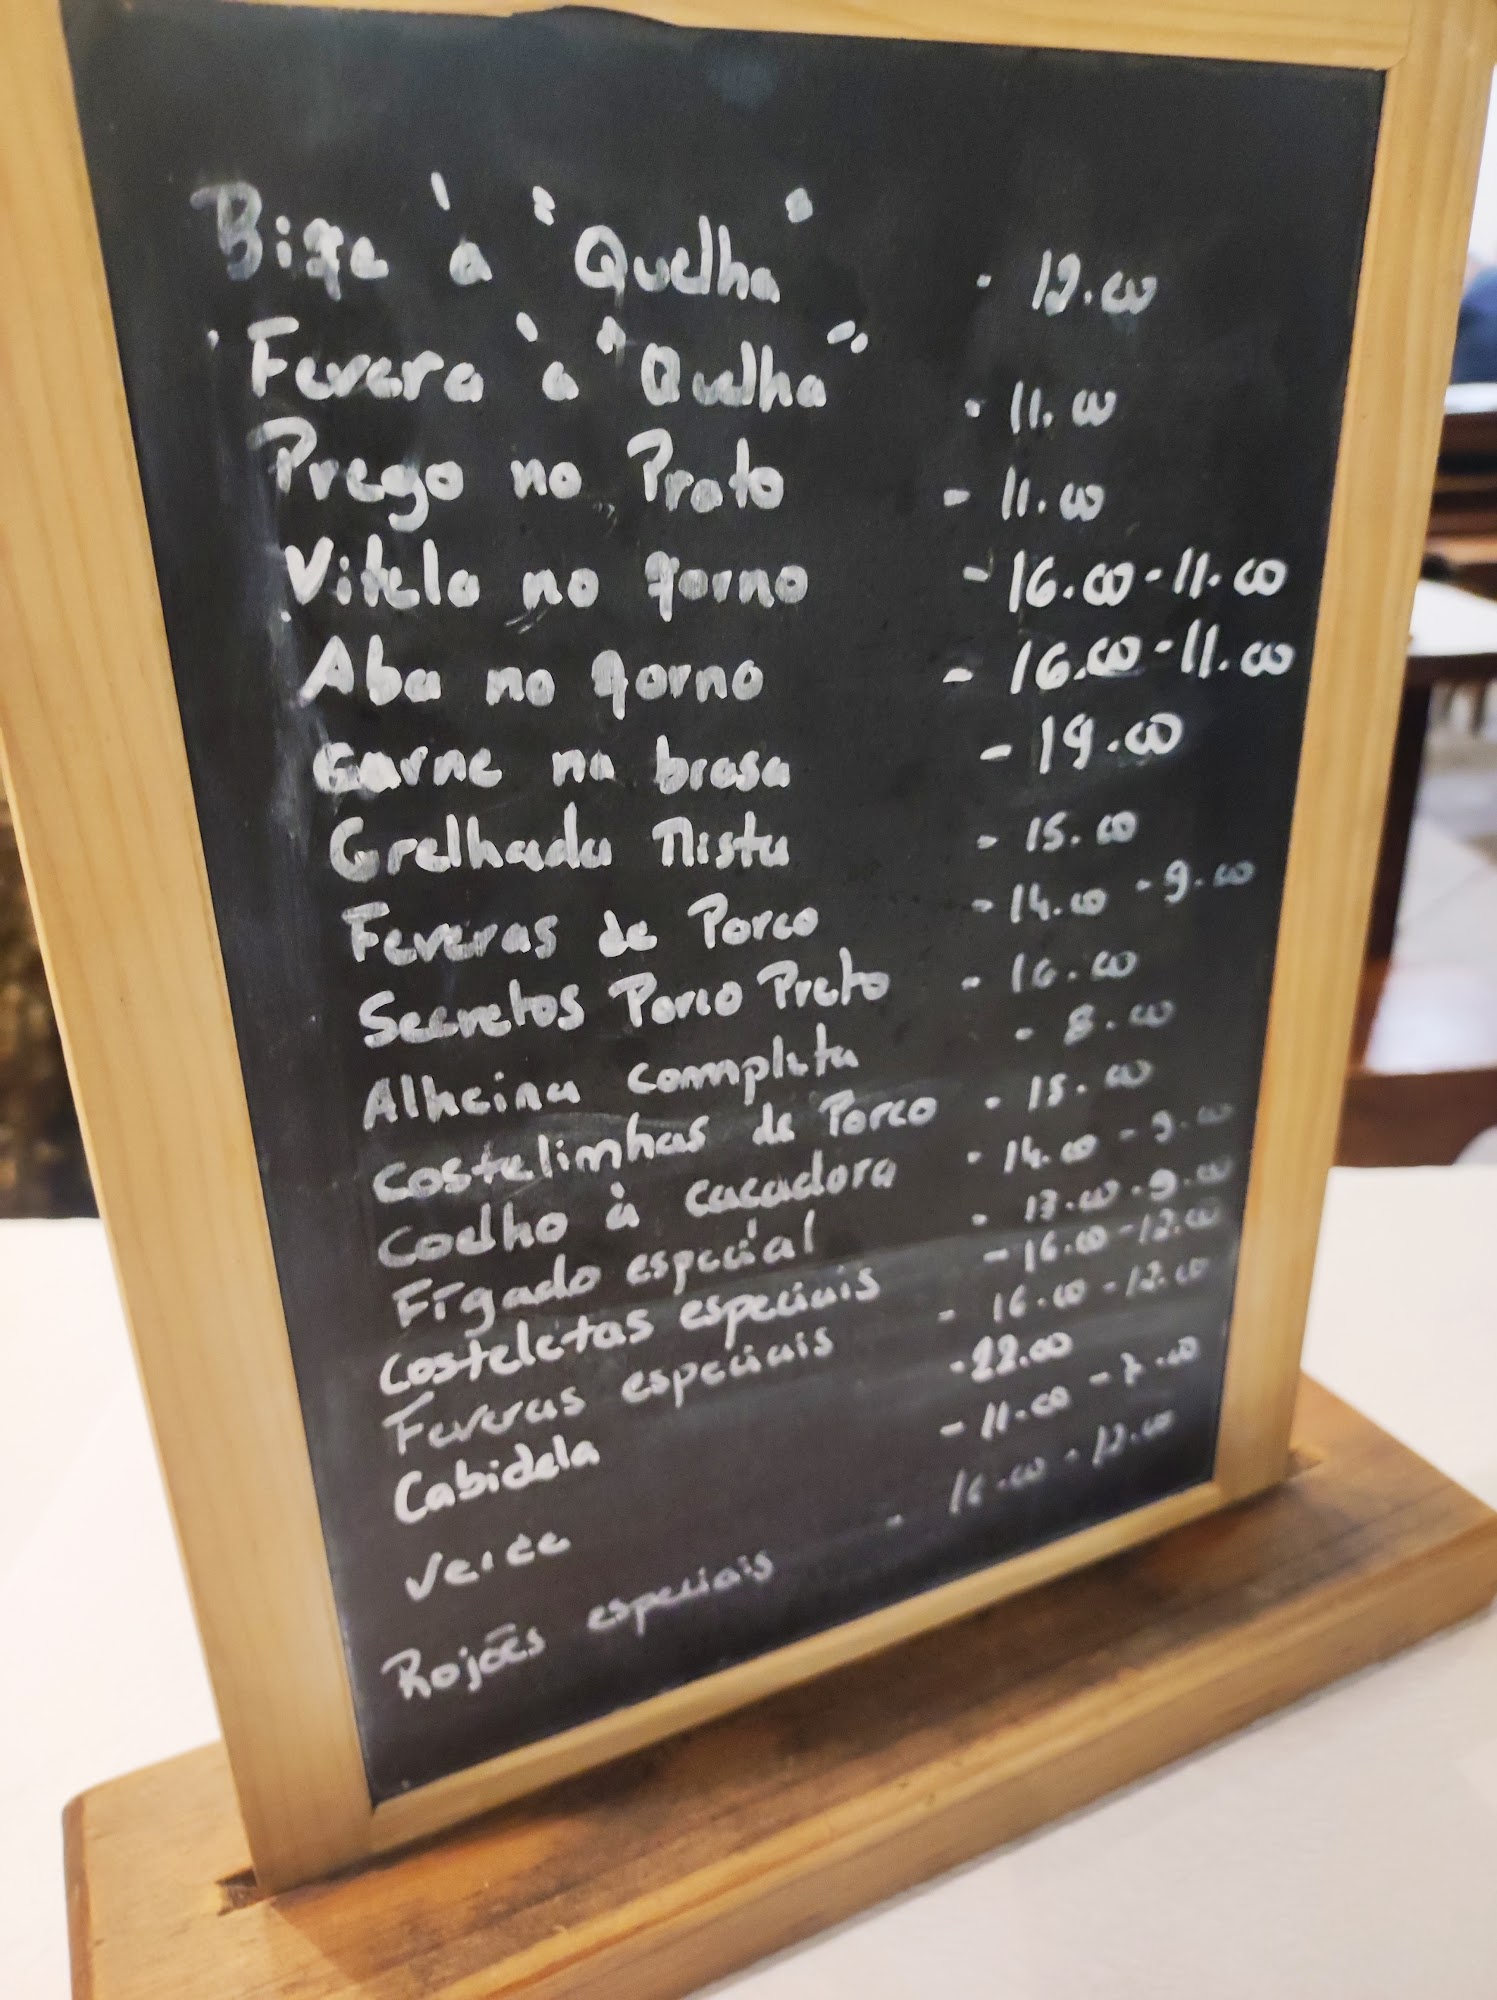 Bife à "Quelha" - 12.00
Fevera à "Quelha" - 11.00
Prego no Prato - 11.00
Vitela no forno - 16.00 - 11.00
Aba no forno - 16.00 - 11.00
Carne na brasa - 19.00
Grelhada Mista - 15.00
Feveras de Porco - 14.00 - 9.00
Secretos Porco Preto - 16.00
Alheina completa - 8.00
Costelinhas de Porco - 15.00
Coelho à cacadora - 14.00 - 9.00
Fígado especial - 13.00 - 9.00
Costeletas especiais - 16.00 - 12.00
Feveras especiais - 16.00 - 12.00
Cabidela - 22.00
Verde - 11.00 - 7.00
Rojões especiais - 16.00 - 12.00